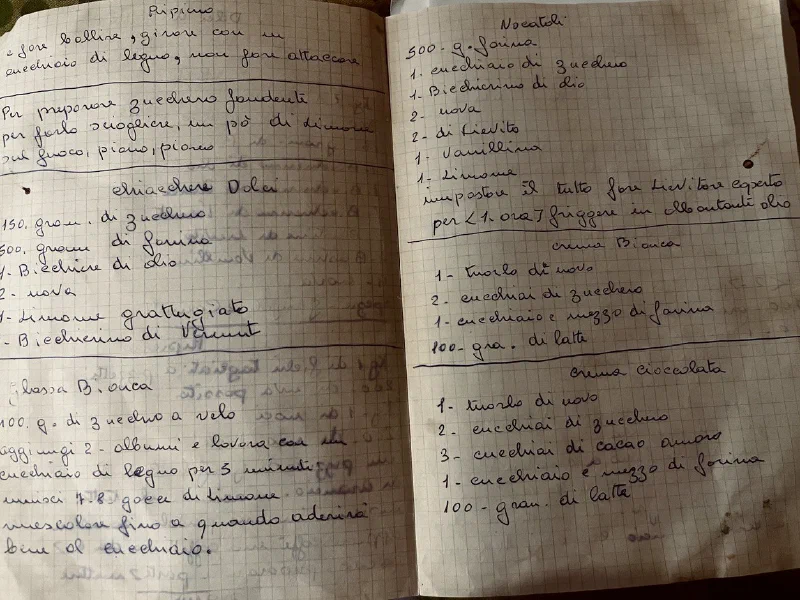 Ripieno
e fare bollire, girare con un
cucchiaio di legno, non fare attaccare
Per preparare zucchero fondente
per farlo sciogliere, un pò di Limone
sul fuoco, piano, piano
chiacchere Dolci
150. gram. di zucchero
500. gram di farina
1- Bicchire di olio
2- uova
1- Limone grattugiato
- Bicchierino di Vermut
glassa Bianca
100. g. di zucchero a velo
aggiungi 2- albumi e lavora con un
cucchiaio di legno per 5 minuti
unisci 7-8 gocce di Limone
mescolare fino a quando aderirà
bene al cucchiaio.
Nocatoli
500- g. farina
1. cucchiaio di zucchero
1- Bicchierino di olio
2- uova
2- di Lievito
1- Vanillina
1- Limone
impastare il tutto fare Lievitare coperto
per <1. ora> friggere in abbontante olio
crema Bianca
1- tuorlo di uovo
2- cucchiai di zucchero
1- cucchiaio e mezzo di farina
100- gra. di latte
crema cioccolata
1- tuorlo di uovo
2- cucchiai di zucchero
3- cucchiai di cacao amaro
1- cucchiaio e mezzo di farina
100- gram. di latte